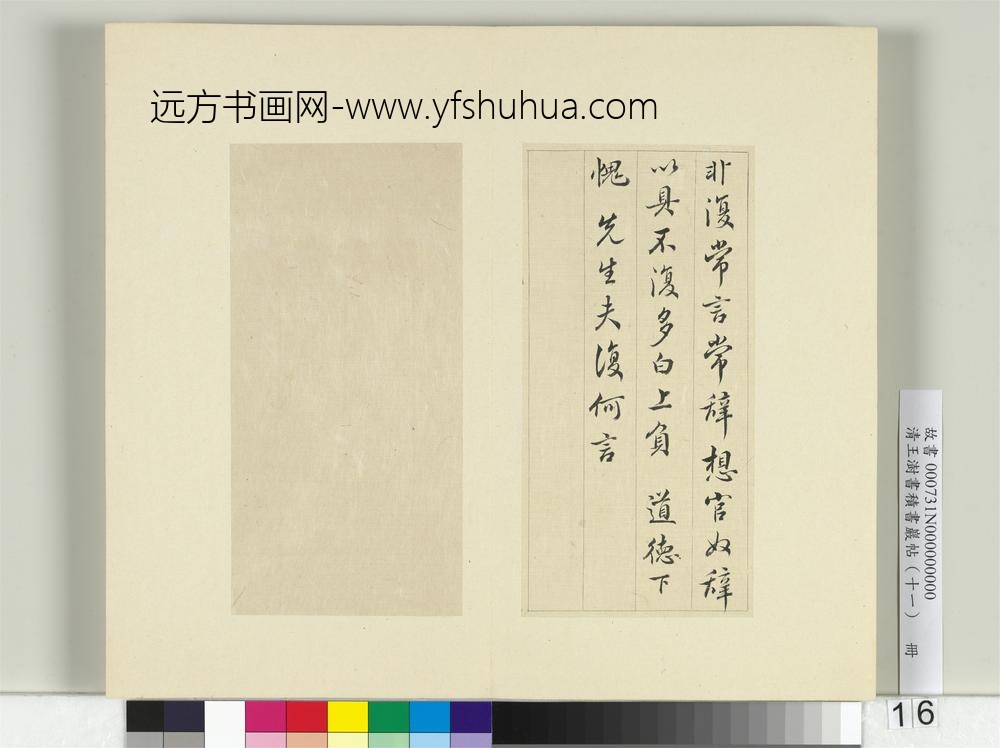 远方书画网-www.yfshuhua.com
非復常言常辞想官奴辞
以具不復多白上負 道德下
愧 先生夫復何言
故書 000731N000000000
清王澍書積書巖帖(十一) 冊
16